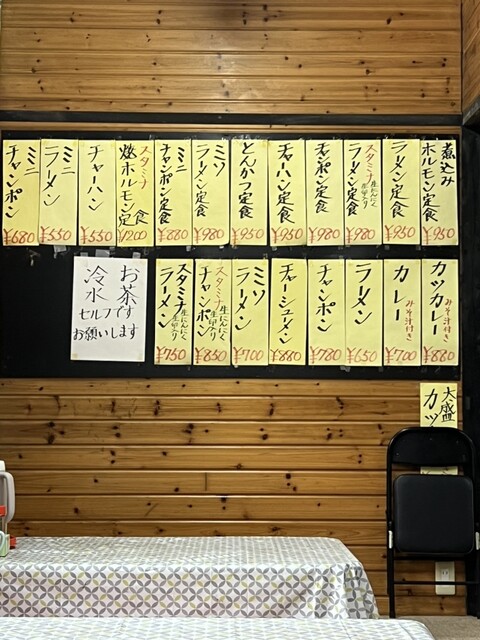 煮込み
ホルモン定食
¥950
ラーメン定食
¥950
スタミナ 生にんにく
生卵入り
ラーメン定食
¥980
チャンポン定食
¥980
チャーハン定食
¥950
とんかつ定食
¥950
ミソ
ラーメン定食
¥980
ミニ
チャンポン定食
¥880
スタミナ
焼ホルモン定食
¥1200
チャーハン
¥550
ミニ
ラーメン
¥550
ミニ
チャンポン
¥680
カツカレー
みそ汁付き
¥880
カレー
みそ汁付き
¥700
ラーメン
¥650
チャンポン
¥780
チャーシューメン
¥880
ミソ
ラーメン
¥700
スタミナ 生にんにく
生卵入り
チャンポン
¥850
スタミナ 生にんにく
生卵入り
ラーメン
¥750
お茶
冷水
セルフです
お願いします
大盛
カツ